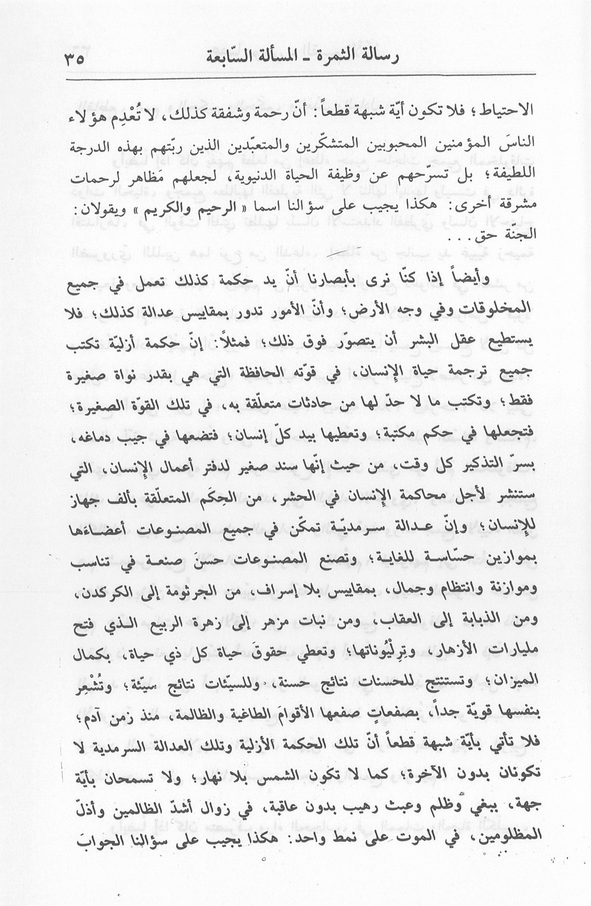 رسالة الثمرة - المسألة السّابعة ٣٥
الاحتياط؛ فلا تكون أيّة شبهة قطعاً: أنّ رحمة وشفقة كذلك، لا تُعْدِم هؤلاء
الناسَ المؤمنين المحبوبين المتشكّرين والمتعبّدين الذين ربّتهم بهذه الدرجة
اللطيفة؛ بل تسرّحهم عن وظيفة الحياة الدنيوية، لجعلهم مَظاهر لرحمات
مشرقة أخرى: هكذا يجيب على سؤالنا اسما «الرحيم والكريم» ويقولان:
الجنّة حق...
وأيضاً إذا كنّا نرى بأبصارنا أنّ يد حكمة كذلك تعمل في جميع
المخلوقات وفي وجه الأرض؛ وأنّ الأمور تدور بمقاييس عدالة كذلك؛ فلا
يستطيع عقل البشر أن يتصوّر فوق ذلك؛ فمثلاً: إنّ حكمة أزليّة تكتب
جميع ترجمة حياة الإنسان، في قوّته الحافظة التي هي بقدر نواة صغيرة
فقط؛ وتكتب ما لا حدّ لها من حادثات متعلّقة به، في تلك القوّة الصغيرة؛
فتجعلها في حكم مكتبة؛ وتعطيها بيد كلّ إنسان؛ فتضعها في جيب دماغه،
بسرّ التذكير كل وقت، من حيث إنّها سند صغير لدفتر أعمال الإنسان، التي
ستنشر لأجل محاكمة الإنسان في الحشر، من الحِكَم المتعلّقة بألف جهاز
للإنسان؛ وإنّ عدالة سرمديّة تمكّن في جميع المصنوعات أعضاءَها
بموازين حسّاسة للغاية؛ وتصنع المصنوعات حسنَ صنعة في تناسب
وموازنة وانتظام وجمال، بمقاييس بلا إسراف، من الجرثومة إلى الكركدن،
ومن الذبابة إلى العقاب، ومن نبات مزهر إلى زهرة الربيع الذي فتح
مليارات الأزهار، وتِرِلْيُوناتها؛ وتعطي حقوقَ حياة كل ذي حياة، بكمال
الميزان؛ وتستنتج للحسنات نتائج حسنة، وللسيّئات نتائج سيّئة؛ وتُشْعِر
بنفسها قويّة جداً، بصفعاتٍ صفعها الأقوامَ الطاغية والظالمة، منذ زمن آدم؛
فلا تأتي بأيّة شبهة قطعاً أنّ تلك الحكمة الأزلية وتلك العدالة السرمدية لا
تكونان بدون الآخرة؛ كما لا تكون الشمس بلا نهار؛ ولا تسمحان بأيّة
جهة، ببغي وظلم وعبث رهيب بدون عاقبة، في زوال أشدّ الظالمين وأذلّ
المظلومين، في الموت على نمط واحد: هكذا يجيب على سؤالنا الجوابَ